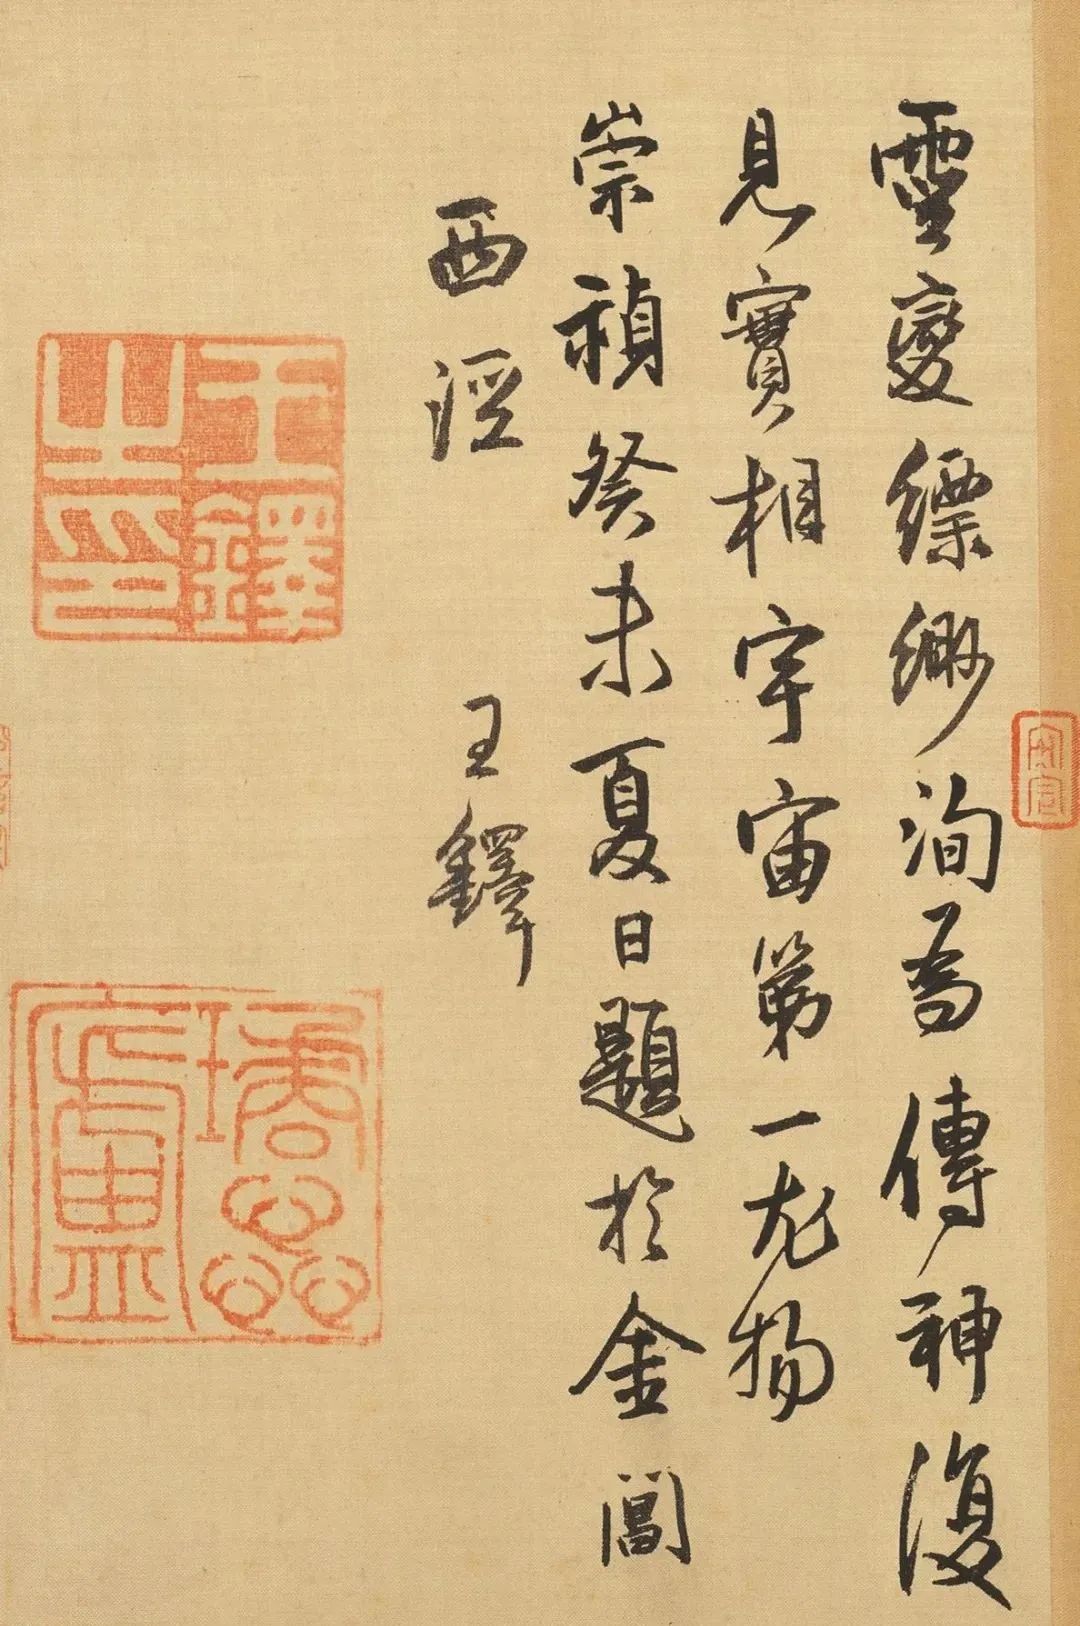 靈變縹緲洵為傳神復
見實相宇宙第一尤物
崇禎癸未夏日題於金閶
西涇 王鐸
王鐸之印
瓊蕊廬